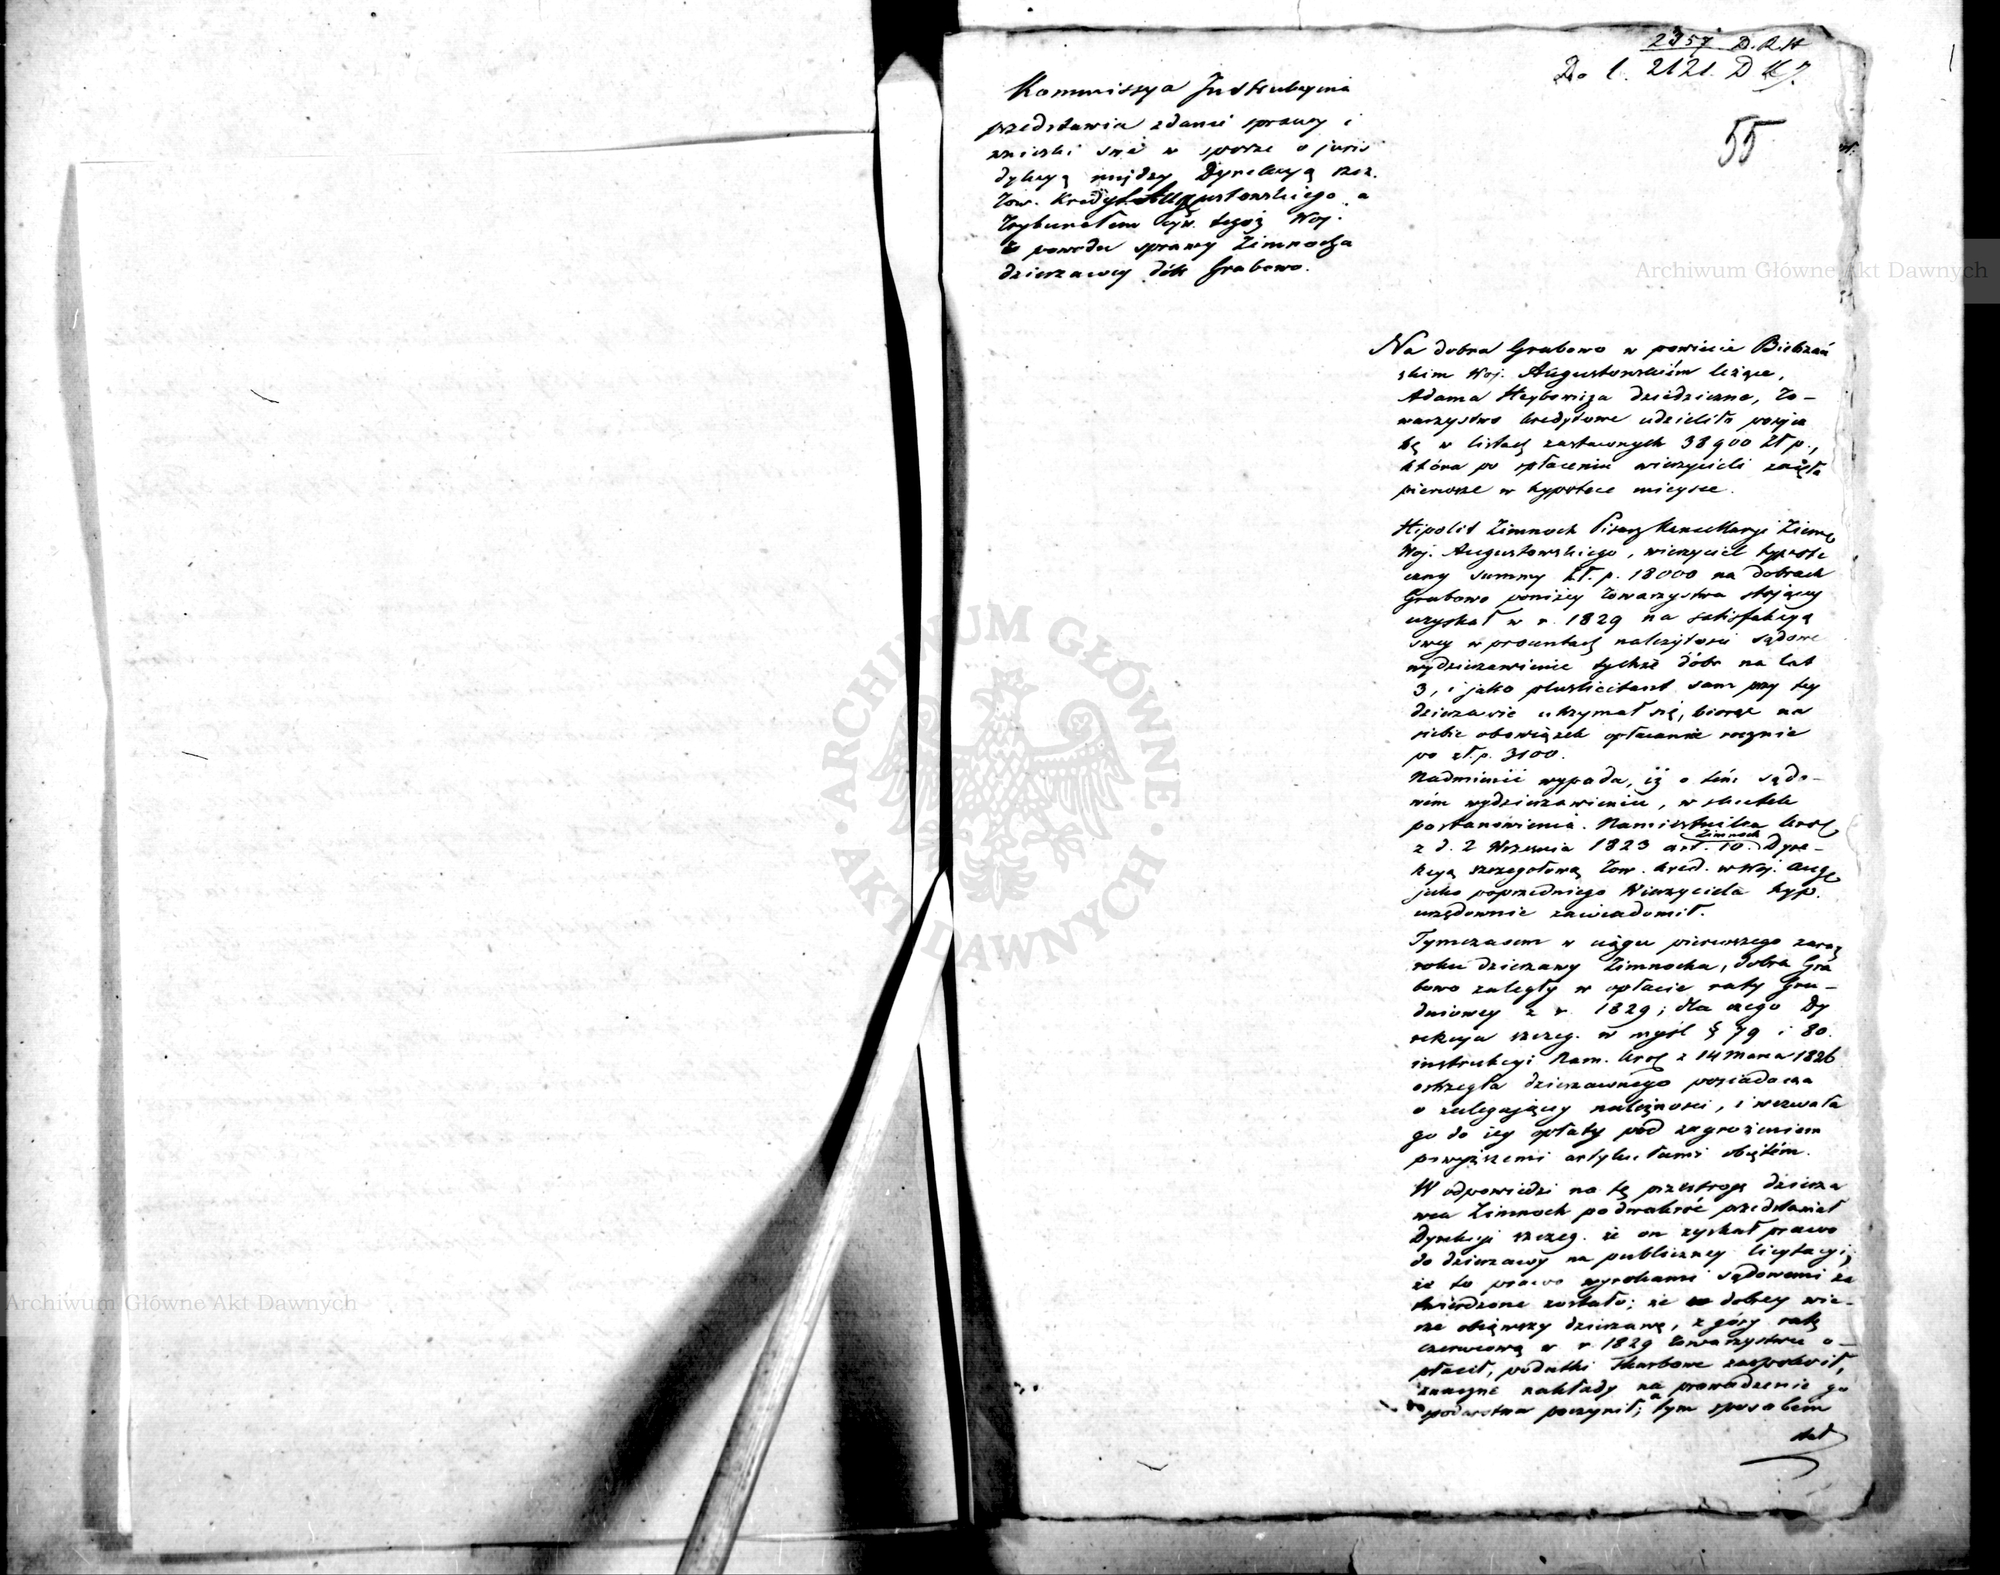 2357 D.R.H
Do l. 2121. D K J.
55
Kommissya Instrukcyina
przedstawia zdanie sprawy i
wnioski swe w sporze o juris
dykcyą między Dyrekcyą szcz.
Tow. Kredyt. Augustowskiego a
Trybunałem cyw. tegoż Woj.
z powodu sprawy Zimnocha
dzierzawcy dóbr Grabowo.
Na dobra Grabowo w powiecie Biebrzań
skim Woj. Augustowskiém leżące,
Adama dziedziczne, To-
warzystwo kredytowe udzieliło pożycz
kę w listach zastawnych 38900 Zł p.,
która po spłaceniu wierzycieli zaięła
pierwsze w hypotece mieysce.
Hipolit Zimnoch Pisarz Kancellaryi Ziem.
Woj. Augustowskiego, wierzyciel hypote
czny summy Zł. p. 18000 na dobrach
Grabowo poniżey Towarzystwa stojący
uzyskał w r. 1829 na satisfakcyą
swey w procentach należytości sądowe
wydzierzawienie tychże dóbr na lat
3, i jako pluslicitant sam przy tey
dzierzawie utrzymał się, biorąc na
siebie obowiązek opłacania rocznie
po zł. p. 3100.
Nadmienić wypada, iż o tém sądo-
wém wydzierzawieniu, w skutek
postanowienia Namiestnika Król.
z d. 2 Września 1823 art. 10. Zimnoch Dyre-
kcyą szczegołową Tow. kred. w Woj. Aug.
jako poprzedniego Wierzyciela hyp.
urzędownie zawiadomił.
Tymczasem w ciągu pierwszego zaraz
roku dzierzawy Zimnocha, dobra Gra
bowo zaległy w opłacie raty Gru-
dniowey z r. 1829; dla czego Dy
rekcya szczeg. w myśl § 79 i 80.
instrukcyi Nam. Król. z 14 Marca 1826
ostrzegła dzierzawnego posiadacza
o zalegającey należności, i wezwała
go do iey opłaty pod zagrożeniem
powyższemi artykułami obiętém.
W odpowiedzi na tę przestrogę dzierza
wca Zimnoch podwakróć przedstawiał
Dyrekcyi szczeg. że on zyskał prawo
do dzierzawy na publiczney licytacyi;
że to prawo wyrokami sądowemi za
twierdzone zostało; że w dobrey wie-
rze obiąwszy dzierzawę, z góry ratę
czerwcową w r. 1829 Towarzystwu o-
płacił, podatki Skarbowe zaspokoił,
znaczne nakłady na prowadzenie go
spodarstwa poczynił; tym sposobem